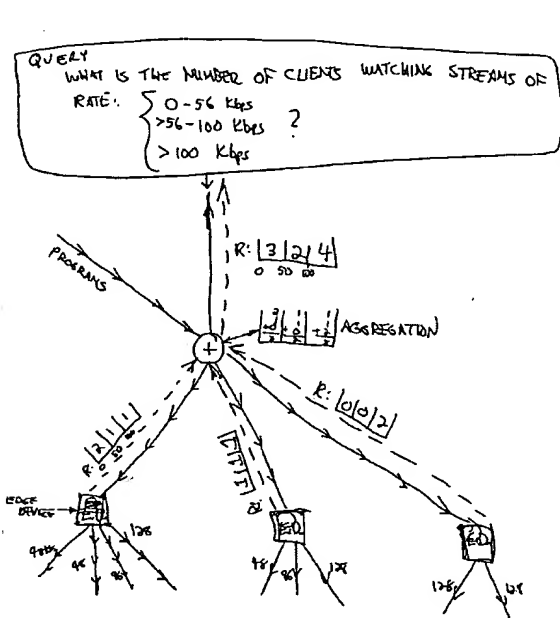 QUERY
WHAT IS THE NUMBER OF CLIENTS WATCHING STREAMS OF
RATE: 0-56 Kbps
>56-100 Kbps ?
>100 Kbps
PROGRAMS
R: |3|2|4|
0 50 100
AGGREGATION
+
R: |2|1|1|
0 50
R: |1|1|1|
R: |0|0|2|
EDGE
DEVICE
ED
ED
48
96
128
48
96
128
128
128